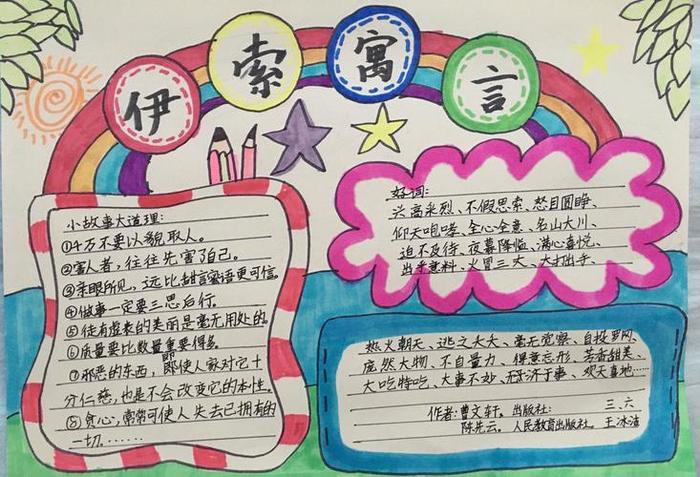 伊索寓言
小故事大道理:
①千万不要以貌取人。
②害人者，往往先害了自己。
③亲眼所见，远比甜言蜜语更可信。
④做事一定要三思后行。
⑤徒有虚表的美丽是毫无用处的。
⑥质量要比数量重要得多。
⑦邪恶的东西，即使人家对它十
分仁慈，也是不会改变它的本性。
⑧贪心，常常可使人失去已拥有的
一切……
好词:
兴高采烈、不假思索、怒目圆睁、
仰天咆哮、全心全意、名山大川、
迫不及待、夜幕降临、满心喜悦、
出乎意料、火冒三丈、大打出手、
热火朝天、逃之夭夭、毫无觉察、自投罗网、
庞然大物、不自量力、得意忘形、芳香甜美、
大吃特吃、大事不妙、无济于事、欢天喜地……
作者:曹文轩。出版社: 三、六
陈先云。人民教育出版社。王冰洁